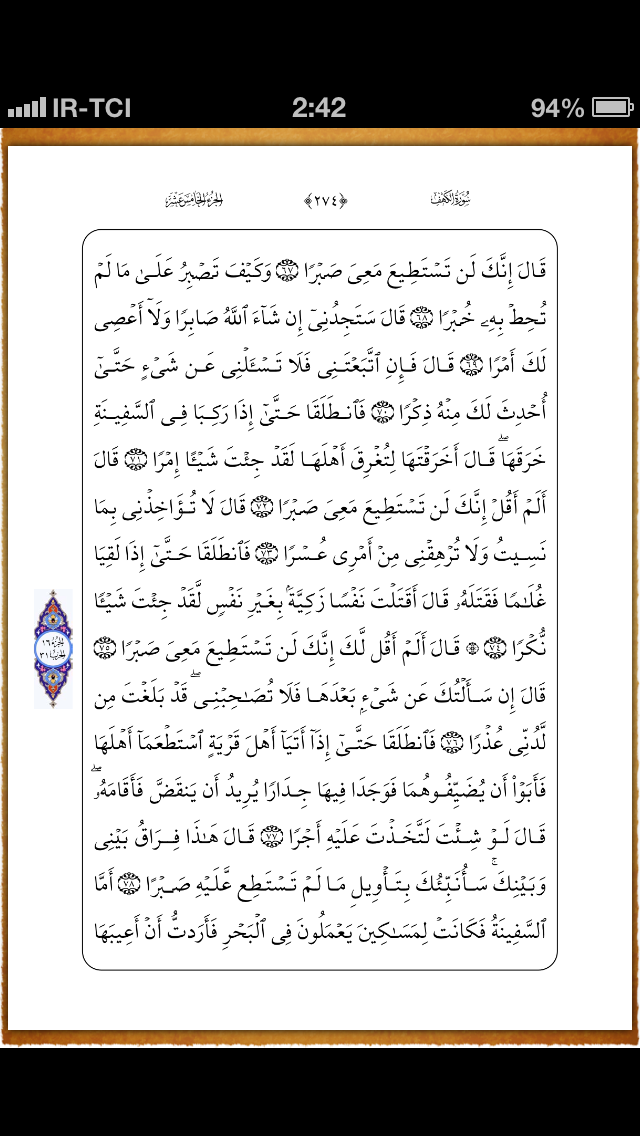 IR-TCI 2:42 94%
سُورَةُ الكَهْفِ ﴿٢٧٤﴾ الجُزْءُ الخَامِسَ عَشَرَ
قَالَ إِنَّكَ لَن تَسْتَطِيعَ مَعِىَ صَبْرًا ٦٧ وَكَيْفَ تَصْبِرُ عَلَىٰ مَا لَمْ
تُحِطْ بِهِۦ خُبْرًا ٦٨ قَالَ سَتَجِدُنِىٓ إِن شَآءَ ٱللَّهُ صَابِرًا وَلَآ أَعْصِى
لَكَ أَمْرًا ٦٩ قَالَ فَإِنِ ٱتَّبَعْتَنِى فَلَا تَسْـَٔلْنِى عَن شَىْءٍ حَتَّىٰٓ
أُحْدِثَ لَكَ مِنْهُ ذِكْرًا ٧٠ فَٱنطَلَقَا حَتَّىٰٓ إِذَا رَكِبَا فِى ٱلسَّفِينَةِ
خَرَقَهَا ۖ قَالَ أَخَرَقْتَهَا لِتُغْرِقَ أَهْلَهَا لَقَدْ جِئْتَ شَيْـًٔا إِمْرًا ٧١ قَالَ
أَلَمْ أَقُلْ إِنَّكَ لَن تَسْتَطِيعَ مَعِىَ صَبْرًا ٧٢ قَالَ لَا تُؤَاخِذْنِى بِمَا
نَسِيتُ وَلَا تُرْهِقْنِى مِنْ أَمْرِى عُسْرًا ٧٣ فَٱنطَلَقَا حَتَّىٰٓ إِذَا لَقِيَا
غُلَـٰمًا فَقَتَلَهُۥ قَالَ أَقَتَلْتَ نَفْسًا زَكِيَّةًۢ بِغَيْرِ نَفْسٍ لَّقَدْ جِئْتَ شَيْـًٔا
نُّكْرًا ٧٤ ۞ قَالَ أَلَمْ أَقُل لَّكَ إِنَّكَ لَن تَسْتَطِيعَ مَعِىَ صَبْرًا ٧٥
قَالَ إِن سَأَلْتُكَ عَن شَىْءٍۭ بَعْدَهَا فَلَا تُصَـٰحِبْنِى ۖ قَدْ بَلَغْتَ مِن
لَّدُنِّى عُذْرًا ٧٦ فَٱنطَلَقَا حَتَّىٰٓ إِذَآ أَتَيَآ أَهْلَ قَرْيَةٍ ٱسْتَطْعَمَآ أَهْلَهَا
فَأَبَوْا۟ أَن يُضَيِّفُوهُمَا فَوَجَدَا فِيهَا جِدَارًا يُرِيدُ أَن يَنقَضَّ فَأَقَامَهُۥ ۖ
قَالَ لَوْ شِئْتَ لَتَّخَذْتَ عَلَيْهِ أَجْرًا ٧٧ قَالَ هَـٰذَا فِرَاقُ بَيْنِى
وَبَيْنِكَ ۚ سَأُنَبِّئُكَ بِتَأْوِيلِ مَا لَمْ تَسْتَطِع عَّلَيْهِ صَبْرًا ٧٨ أَمَّا
ٱلسَّفِينَةُ فَكَانَتْ لِمَسَـٰكِينَ يَعْمَلُونَ فِى ٱلْبَحْرِ فَأَرَدتُّ أَنْ أَعِيبَهَا
الجزء ١٦
الحزب ٣١